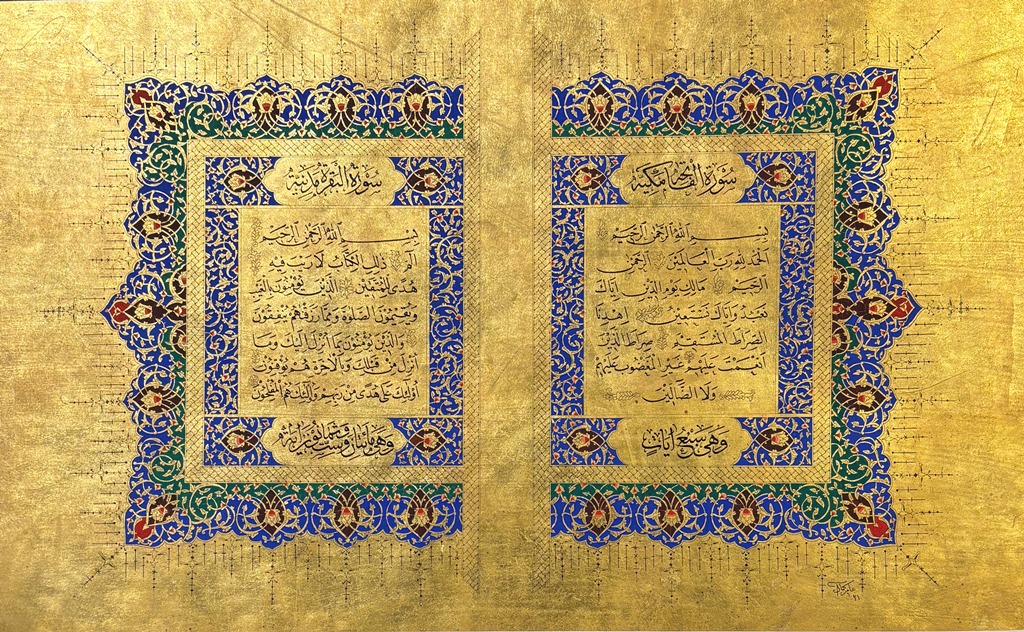 سورة الفاتحة مكية
بسم الله الرحمن الرحيم
الحمد لله رب العالمين الرحمن
الرحيم مالك يوم الدين اياك
نعبد واياك نستعين اهدنا
الصراط المستقيم صراط الذين
انعمت عليهم غير المغضوب عليهم
ولا الضالين
وهي سبع ايات
سورة البقرة مدنية
بسم الله الرحمن الرحيم
الم ذلك الكتاب لا ريب فيه
هدى للمتقين الذين يؤمنون بالغيب
ويقيمون الصلوة ومما رزقناهم ينفقون
والذين يؤمنون بما انزل اليك وما
انزل من قبلك وبالاخرة هم يوقنون
اولئك على هدى من ربهم واولئك هم المفلحون
وهي مائتان وست وثمانون اية